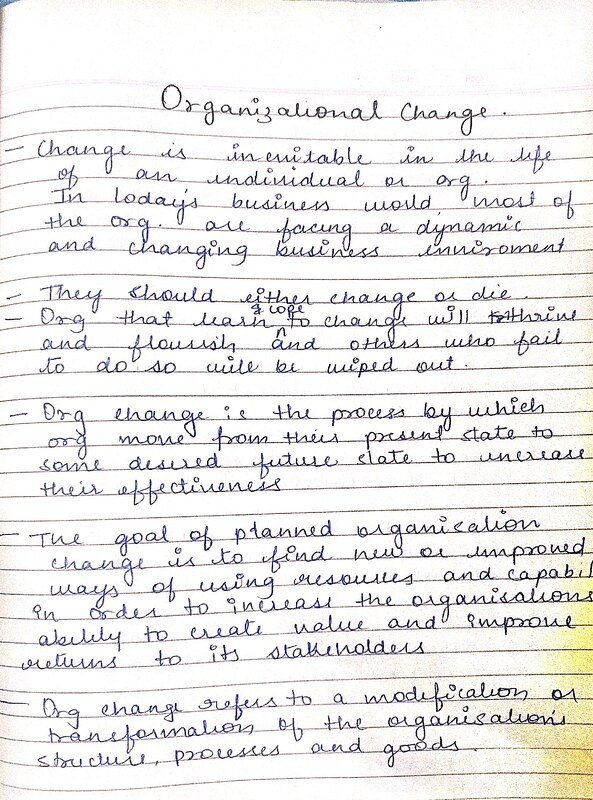 Organizational Change.
- Change is inevitable in the life
of an individual or org.
In today's business world, most of
the org. are facing a dynamic
and changing business enviroment
- They should either change or die.
- Org that learn & cope to change will thrive
and flourish and others who fail
to do so will be wiped out.
- Org change is the process by which
org move from their present state to
some desired future state to increase
their effectiveness
- The goal of planned organisation
change is to find new or improved
ways of using resources and capabil
in order to increase the organisations
ability to create value and improve
returns to its stakeholders
- Org change refers to a modification or
transformation of the organisation's
structure, processes and goods.